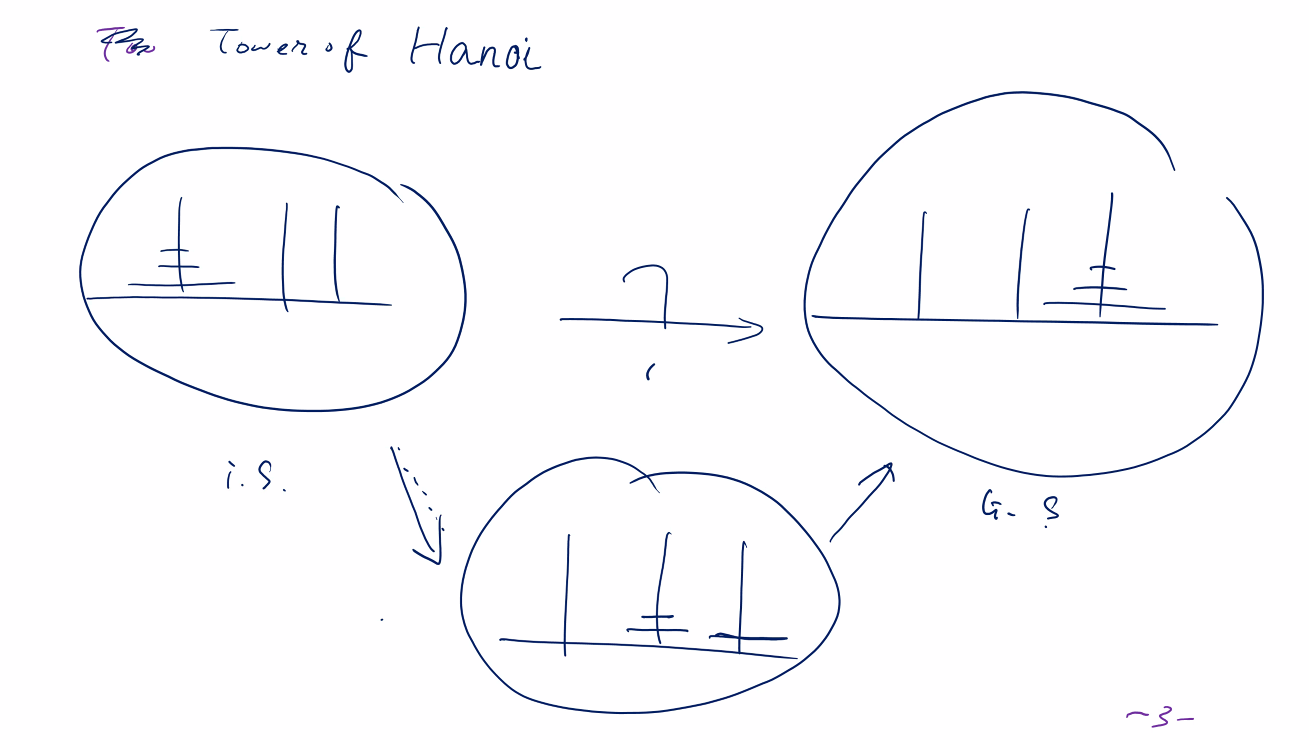 Tower of Hanoi
?
i.S.
G.S
-3-